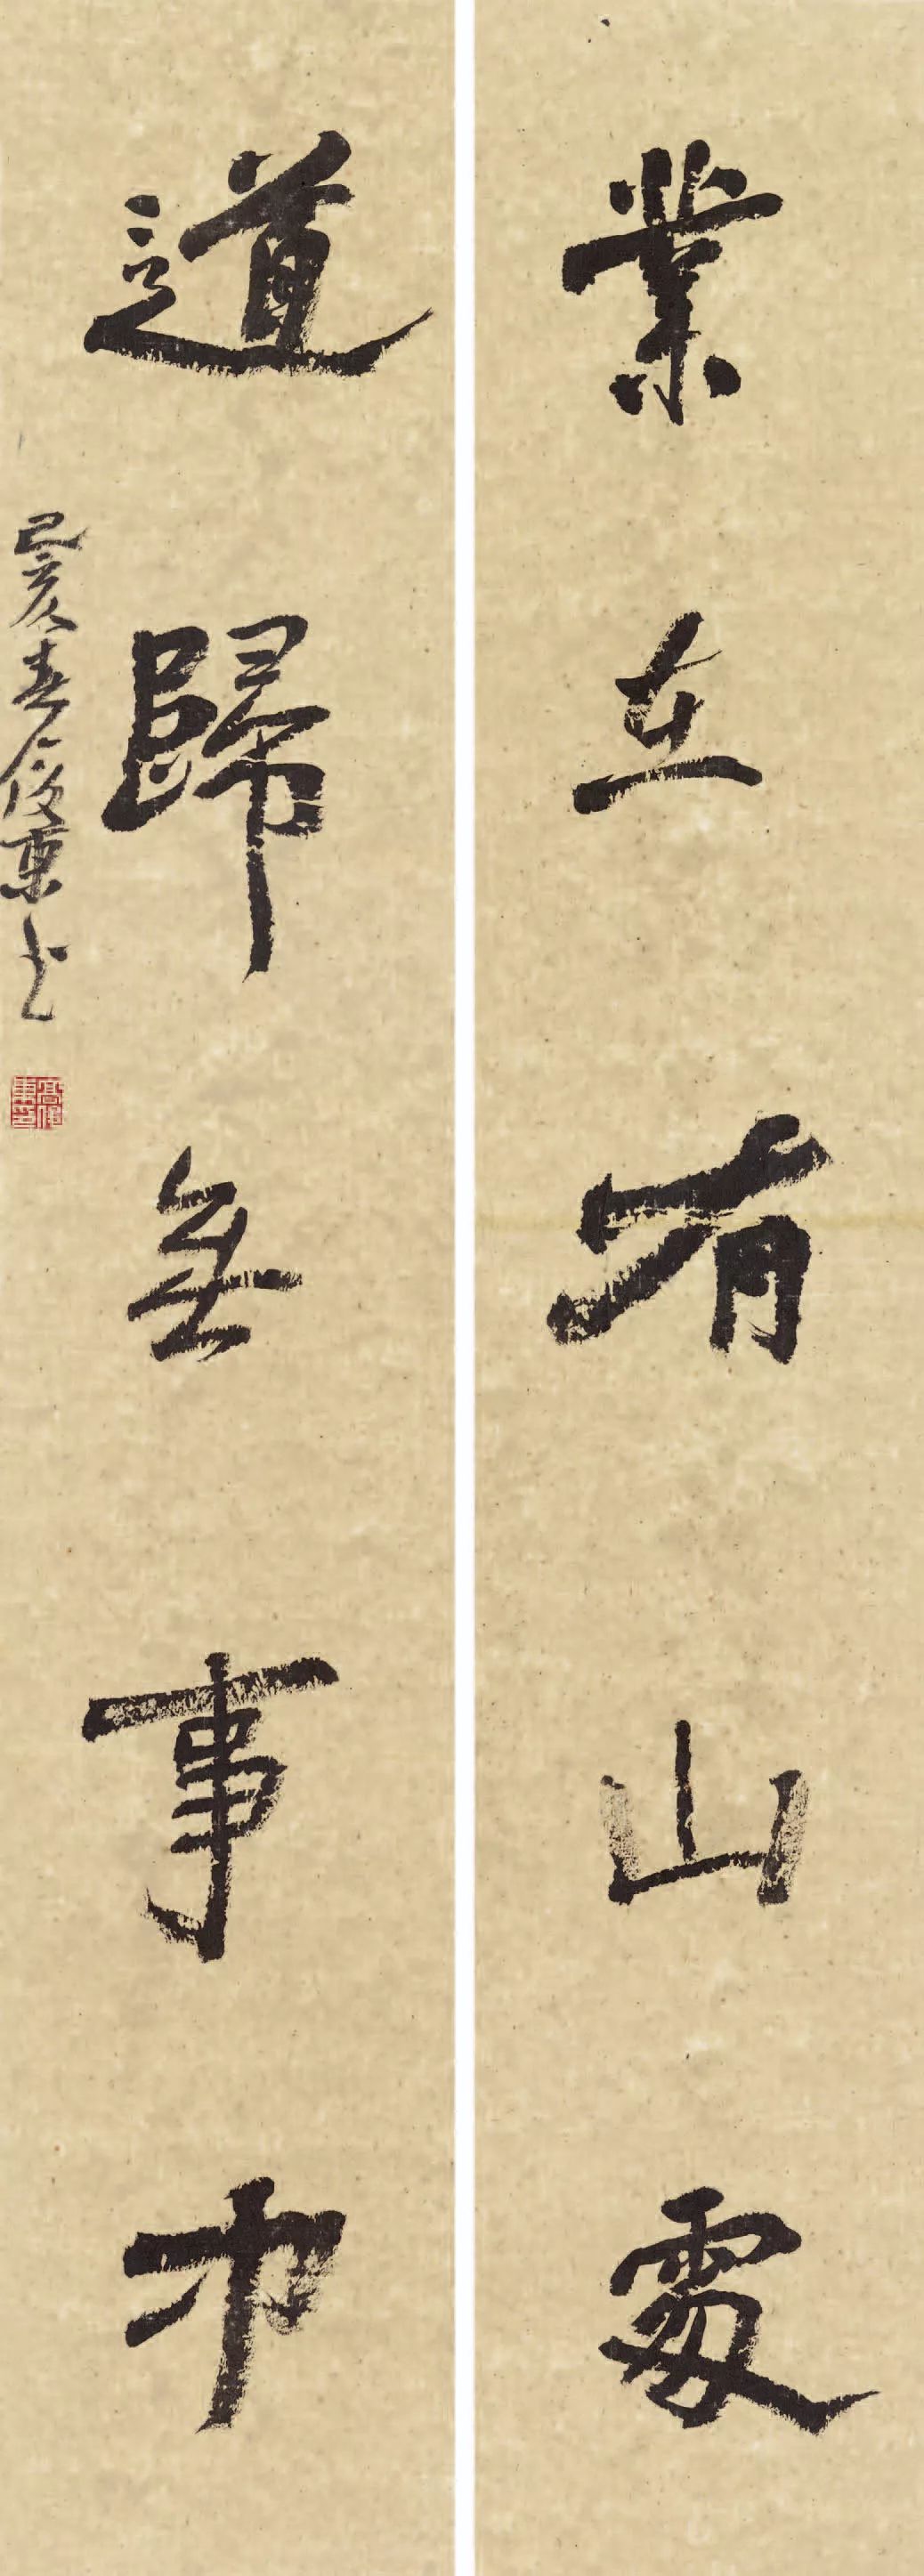 業在有山處
道歸無事中
己亥春俊東书